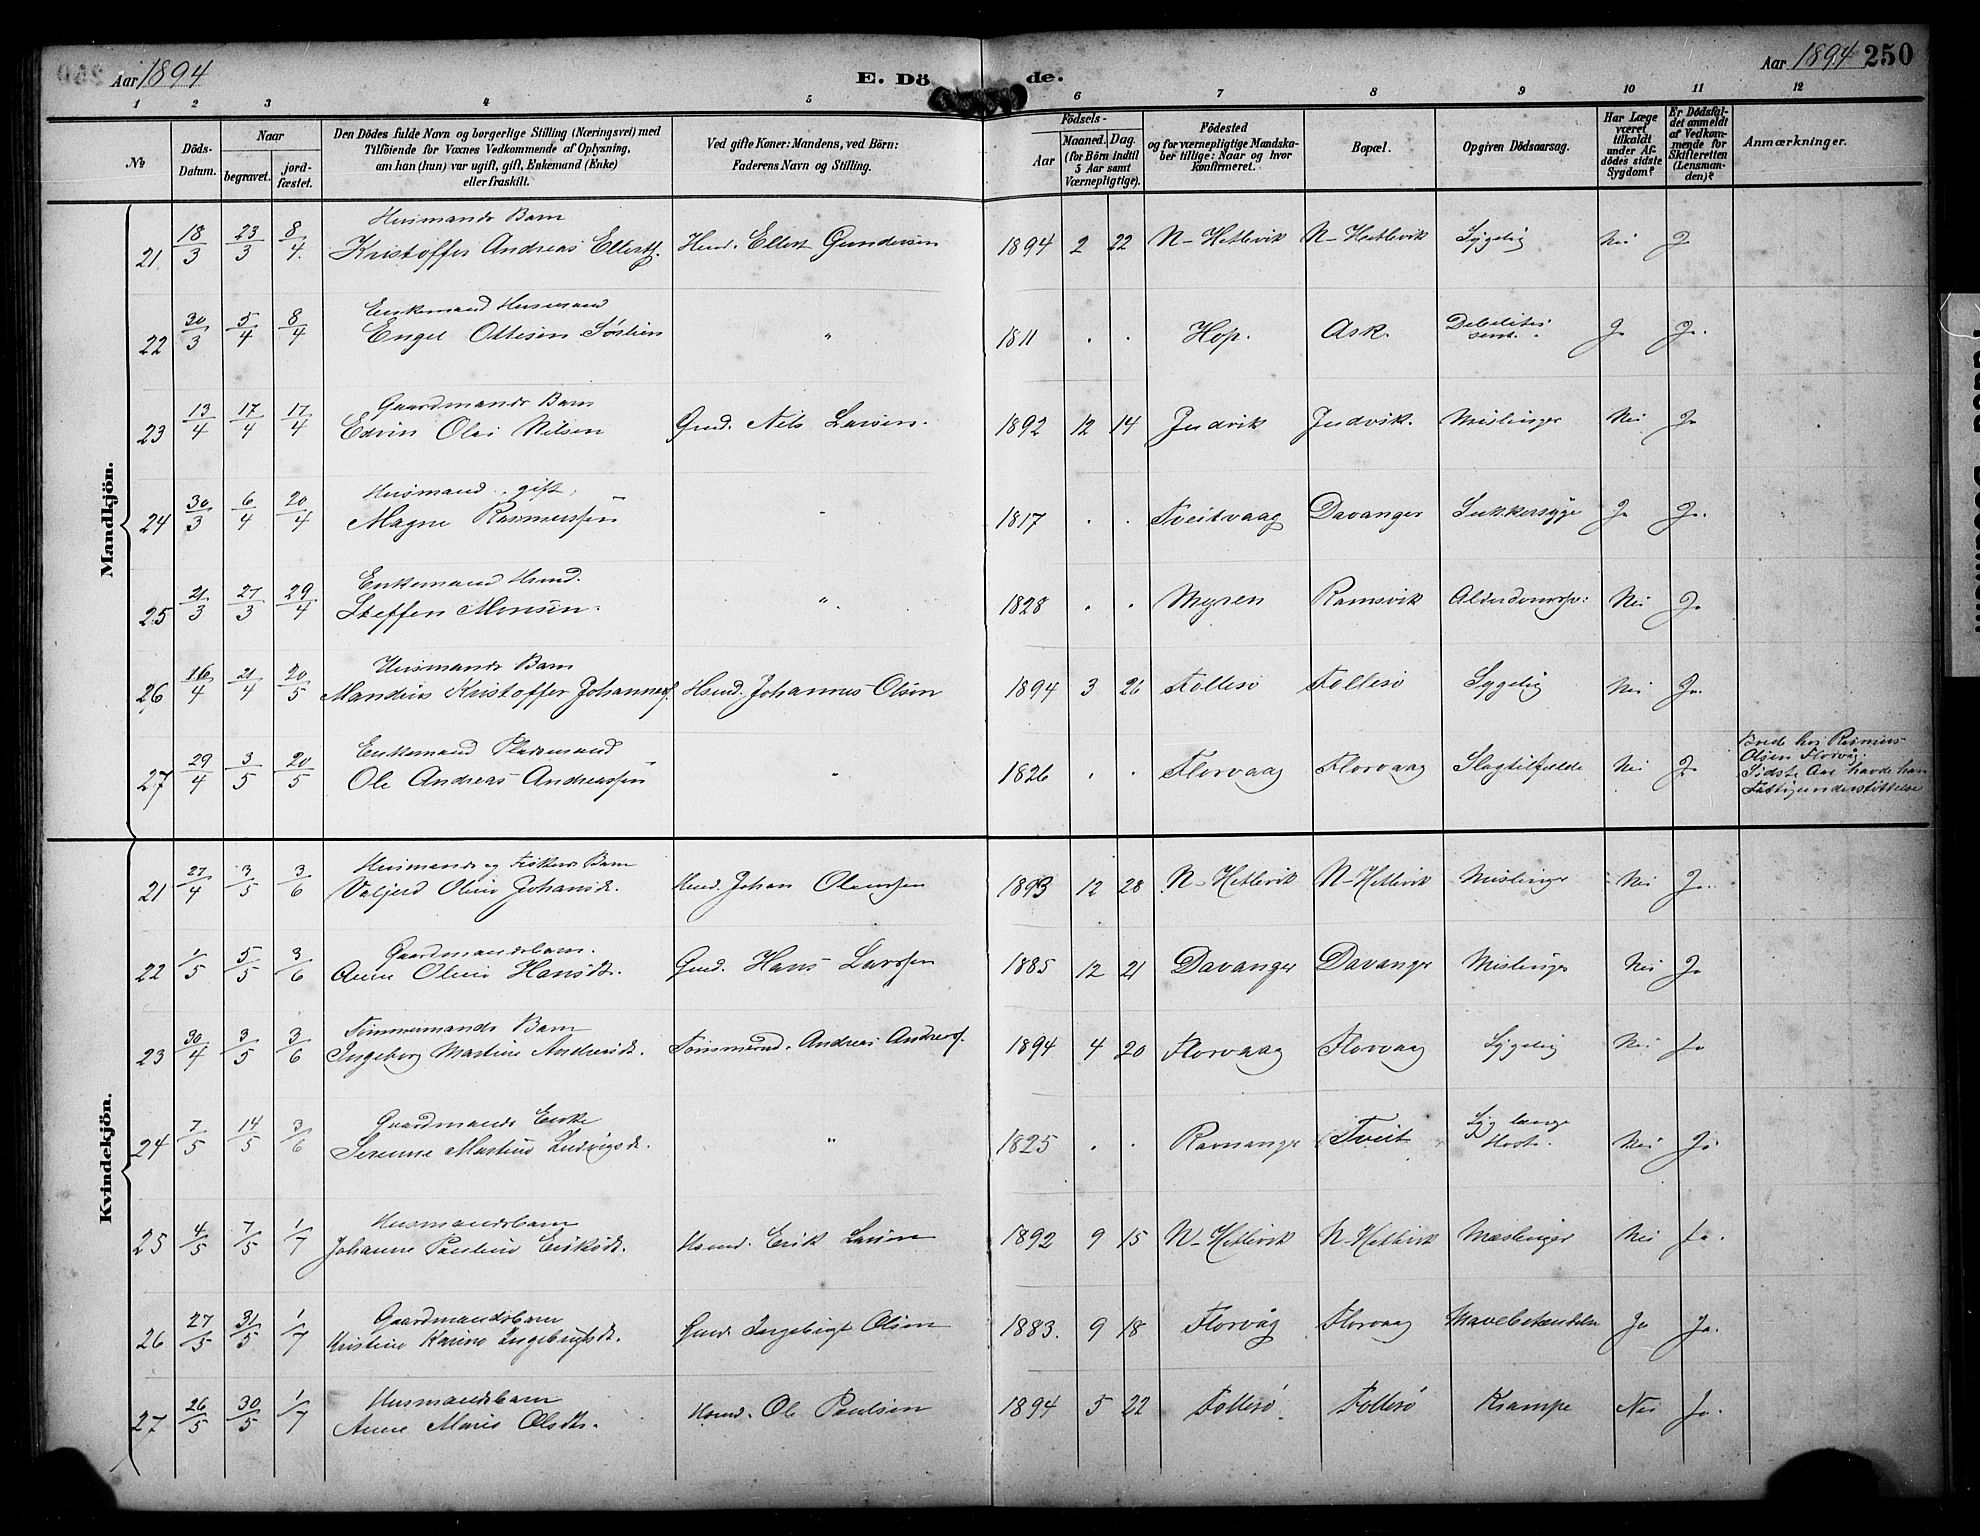 Aar 1894
E. Dö de.
Aar 1894 250
1 2 3 4 5 6 7 8 9 10 11 12
№
Döds-Datum.
Naar
begravet.
jord-fæstet.
Den Dödes fulde Navn og borgerlige Stilling (Næringsvei) med
Tilföiende for Voxnes Vedkommende af Oplysning,
om han (hun) var ugift, gift, Enkemand (Enke)
eller fraskilt.
Ved gifte Koner: Mandens, ved Börn:
Faderens Navn og Stilling.
Födsels-
Aar
Maaned. Dag.
(for Börn indtil
5 Aar samt
Værnepligtige).
Födested
og for værnepligtige Mandska-
ber tillige: Naar og hvor
konfirmeret.
Bopæl.
Opgiven Dödsaarsag.
Har Læge
været
tilkaldt
under Af-
dödes sidste
Sygdom?
Er Dödsfal-
det anmeldt
af Vedkom-
mende for
Skifteretten
(Lensman-
den)?
Anmærkninger.
Mandkjön.
Husmands Barn
21 18/3 23/3 8/4 Kristoffer Andreas Ellerts. Husd. Ellert Gundersen 1894 2 22 N-Hetlevik N-Hetlevik Sygelig Nei J
Enkemand Husmand
22 30/3 5/4 8/4 Engel Ottesen " 1811 . . Hop. Ask. Debilitas sent. J J.
Gaardmands Barn
23 13/4 17/4 17/4 Edvin Olai Nilsen Gmd. Nils Larsen. 1892 12 14 Judvik Judvik. Mislinger Nei Ja
Husmand. gift,
24 30/3 6/4 20/4 Magne Rasmussen " 1817 . . Tveitvaag Davanger Sukkersyge Ja J.
Enkemand Hsmd.
25 21/3 27/3 29/4 Steffen Monsen. " 1828 . . Myren Ramsvik Nei Ja
Husmands Barn
26 16/4 21/4 20/5 Mandius Kristoffer Johanness. Hsmd. Johannes Olsen 1894 3 26 Follesö Follesö Sygelig Nei Ja.
Enkemand Pladsmand
27 29/4 3/5 20/5 Ole Andreas Andreassen " 1826 . . Florvaag Florvaag Slagtilfælde Nei J.
Boede hos Rasmus
Olsen Florvåg
Sidste Aar havde han
Fattigunderstöttelse
Kvindekjön.
Husmands og Fiskers Barn
21 27/4 3/5 3/6 Valjerd Oline Johansdt. Hmd. Johan Olenssen 1893 12 28 N-Hetlevik N-Hetlevik Mislinger Nei Ja.
Gaardmandsbarn.
22 1/5 5/5 3/6 Anne Oline Hansdt. Gmd. Hans Larssen 1885 12 21 Davanger Davanger Mislinger Nei Ja
Tømmermands Barn
23 30/4 3/5 3/6 Ingeborg Martine Andreasdt. Tömmermd. Andreas Andreas. 1894 4 20 Florvaag Florvaag Sygelig Nei Ja
Gaardmands Enke
24 7/5 14/5 3/6 Serenne Martine Ludvigsdt. " 1825 . . Ravnanger Tveit Syg lunge Host. Nei Ja
Husmandsbarn
25 4/5 7/5 1/7 Johanne Pauline Eriksdt. Hsmd. Erik Larsen 1892 9 15 N-Hetlevik N-Hetlevik Mæslinger Nei Ja.
Gaardmandsbarn
26 27/5 31/5 1/7 Kristine Karine Ingebrigtsdt. Gmd. Ingebrigt Olsen 1883. 9 18 Florvåg Florvaag Mavebetændelse Ja Ja.
Husmandsbarn
27 26/5 30/5 1/7 Anne Marie Olsdtr. Hsmd. Ole Paulsen 1894 5 22 Follesö Follesö Krampe Nei Ja.